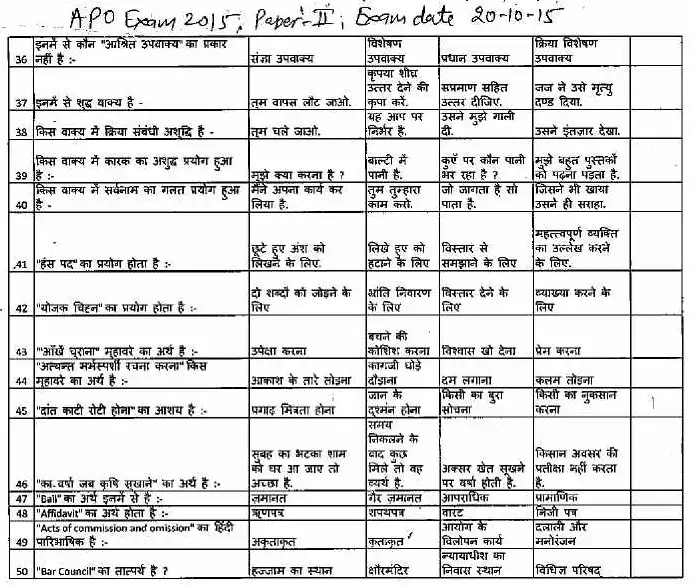 APO Exam 2015, Paper-II, Exam date 20-10-15
36 इनमें से कौन "आश्रित उपवाक्य" का प्रकार नहीं है :- संज्ञा उपवाक्य विशेषण उपवाक्य प्रधान उपवाक्य क्रिया विशेषण उपवाक्य
37 इनमें से शुद्ध वाक्य है - तुम वापस लौट जाओ. कृपया शीघ्र उत्तर देने की कृपा करें. सप्रमाण सहित उत्तर दीजिए. जज ने उसे मृत्यु दण्ड दिया.
38 किस वाक्य में क्रिया संबंधी अशुद्धि है - तुम चले जाओ. यह आप पर निर्भर है. उसने मुझे गाली दी. उसने इंतज़ार देखा.
39 किस वाक्य में कारक का अशुद्ध प्रयोग हुआ है :- मुझे क्या करना है ? बाल्टी में पानी है. कुएँ पर कौन पानी भर रहा है ? मुझे बहुत पुस्तकों को पढ़ना पड़ता है.
40 किस वाक्य में सर्वनाम का गलत प्रयोग हुआ है - मैंने अपना कार्य कर लिया है. तुम तुम्हारा काम करो. जो जागता है सो पाता है. जिसने भी खाया उसने ही सराहा.
41 "हंस पद" का प्रयोग होता है :- छूटे हुए अंश को लिखने के लिए. लिखे हुए को हटाने के लिए विस्तार से समझाने के लिए महत्त्वपूर्ण व्यक्ति का उल्लेख करने के लिए.
42 "योजक चिह्न" का प्रयोग होता है :- दो शब्दों को जोड़ने के लिए भ्रांति निवारण के लिए विस्तार देने के लिए व्याख्या करने के लिए
43 "आँखें चुराना" मुहावरे का अर्थ है :- उपेक्षा करना बचने की कोशिश करना विश्वास खो देना प्रेम करना
44 "अत्यन्त मर्मस्पर्शी रचना करना" किस मुहावरे का अर्थ है :- आकाश के तारे तोड़ना कागजी घोड़े दौड़ाना दम लगाना कलम तोड़ना
45 "दांत काटी रोटी होना" का आशय है :- प्रगाढ़ मित्रता होना जान के दुश्मन होना किसी का बुरा सोचना किसी का नुकसान करना
46 "का वर्षा जब कृषि सुखाने" का अर्थ है :- सुबह का भटका शाम को घर आ जाए तो अच्छा है. समय निकलने के बाद कुछ मिले तो वह व्यर्थ है. अक्सर खेत सूखने पर वर्षा होती है. किसान अवसर की प्रतीक्षा नहीं करता है.
47 "Bail" का अर्थ इनमें से है :- ज़मानत गैर ज़मानत आपराधिक प्रामाणिक
48 "Affidavit" का अर्थ होता है :- ऋणपत्र शपथपत्र वारंट निजी पत्र
49 "Acts of commission and omission" का हिंदी पारिभाषिक है :- अकृताकृत कृताकृत आयोग के विलोपन कार्य दलाली और मनोरंजन
50 "Bar Council" का तात्पर्य है ? हज्जाम का स्थान क्षौरमंदिर न्यायाधीश का निवास स्थान विधिज्ञ परिषद्